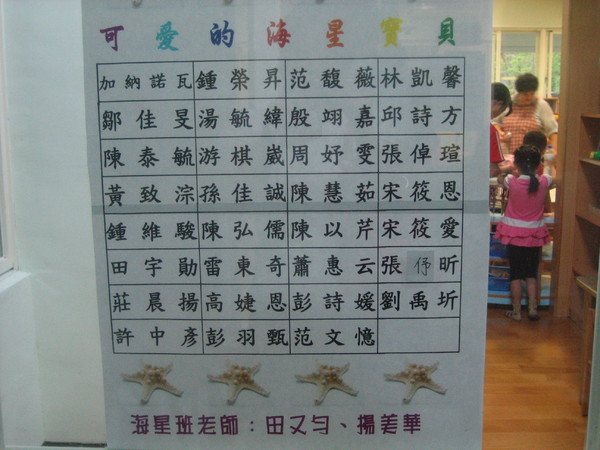 可愛的海星寶貝
加納諾瓦 鍾榮昇 范馥薇 林凱馨
鄒佳旻 湯毓緯 殷翊嘉 邱詩方
陳泰毓 游棋崴 周妤雯 張倬瑄
黃致淙 孫佳誠 陳慧茹 宋筱恩
鍾維駿 陳弘儒 陳以芹 宋筱愛
田宇勛 雷東奇 蕭惠云 張伃昕
莊晨揚 高婕恩 彭詩媛 劉禹圻
許中彥 彭羽甄 范文憶
海星班老師：田又勻、楊美華